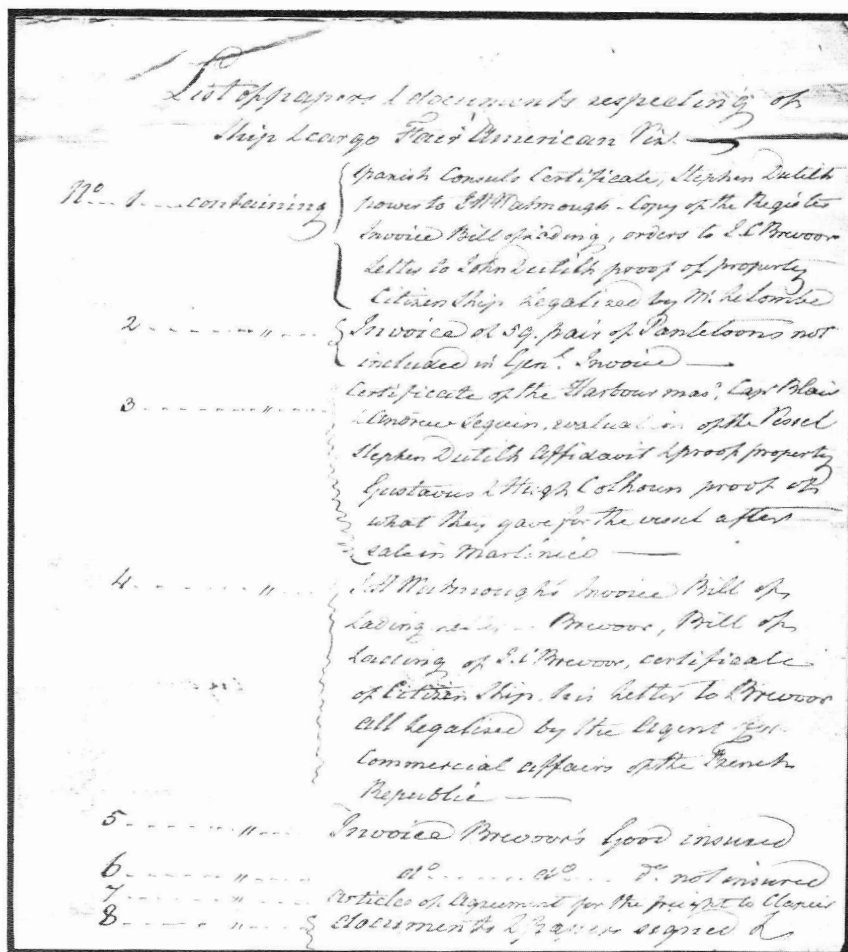 List of papers & documents respecting of
Ship & cargo Fair American Viz.
No 1 containing Spanish Consuls Certificate, Stephen Dutilh
power to J H Watmough Copy of the Register
Invoice Bill of Lading, orders to J. C Brevoor
Letter to John Dutilh proof of property
Citizen Ship Legalized by Mr. Letombe
2 " Invoice of 59. pair of Panteloons not
included in Genl. Invoice
3 " Certificate of the Harbour masr. Capn Blair
& Andrew Seguin, evaluation of the Vessel
Stephen Dutilh Affidavit & proof property
Gustavus & Hugh Colhoun proof of
what they gave for the vessel after
sale in Martinico
4 " J H Watmough's Invoice Bill of
Lading Brevoor, Bill of
Lading of J. C Brevoor, certificate
of Citizen Ship his Letter to Brevoor
all Legalised by the Agent for
Commercial affairs of the French
Republic
5 " Invoice Brevoor's Good insured
6 " do do do not insured
7 " Articles of Agreement for the freight to
8 " documents & papers signed